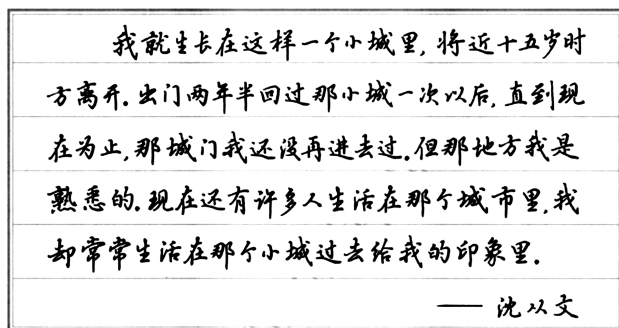 我就生长在这样一个小城里，将近十五岁时
方离开。出门两年半回过那小城一次以后，直到现
在为止，那城门我还没再进去过。但那地方我是
熟悉的。现在还有许多人生活在那个城市里，我
却常常生活在那个小城过去给我的印象里。
—— 沈从文